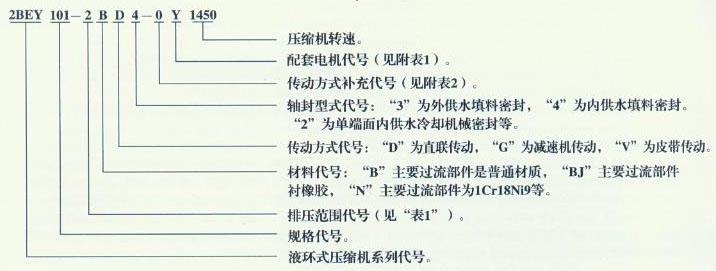 2BEY 101-2 B D 4-0 Y 1450
压缩机转速。
配套电机代号（见附表1）。
传动方式补充代号（见附表2）。
轴封型式代号：“3”为外供水填料密封，“4”为内供水填料密封。
“2”为单端面内供水冷却机械密封等。
传动方式代号：“D”为直联传动，“G”为减速机传动，“V”为皮带传动。
材料代号：“B”主要过流部件是普通材质，“BJ”主要过流部件
衬橡胶，“N”主要过流部件为1Cr18Ni9等。
排压范围代号（见“表1”）。
规格代号。
液环式压缩机系列代号。